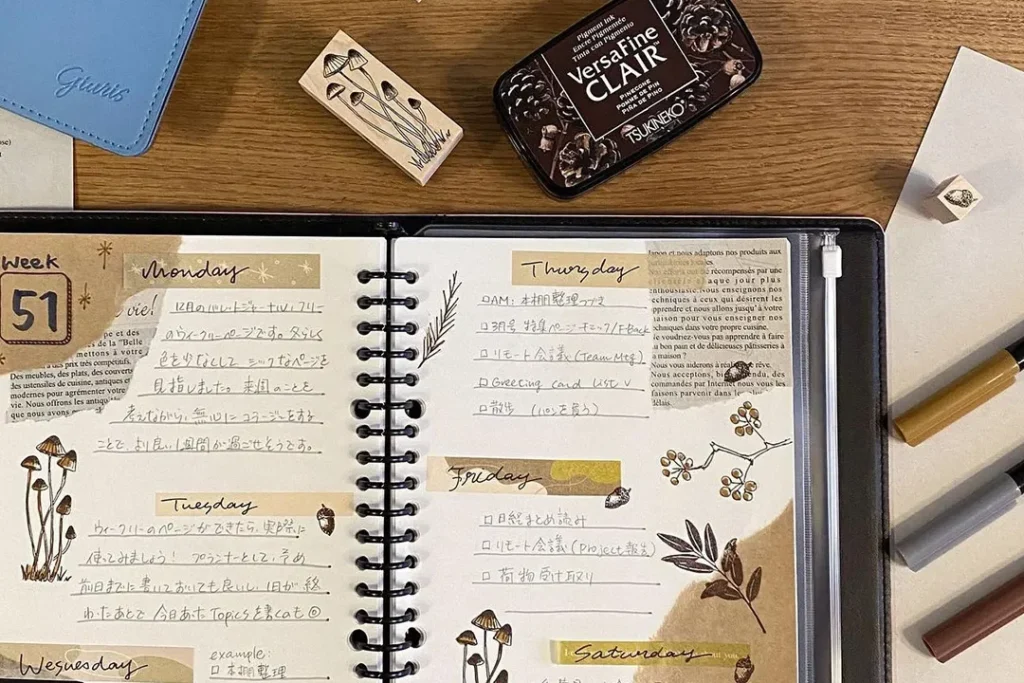 Giuris
Pigment Ink
Encre Pigmentée
Tinta con Pigmento
VersaFine
CLAIR
PINECONE
POMME DE PIN
PIÑA DE PINO
TSUKINEKO
Week
51
vie!
pe et des
de la "Belle
mettons à votre
à des prix très compétitifs.
Des meubles, des plats, des couverts
des ustensiles de cuisine, antiques et
modernes pour agrémenter votre
Nous offrons les antiqu
que nous avons
Monday
12月のバレットジャーナル、フリー
のウィークリーページです。冬らしく
色を少なくして シックなページを
目指しました。来週のことを
考えながら、無心に コラージュをする
ことで、より良い1週間が過ごせそうです。
Tuesday
ウィークリーのページができたら、実際に
使ってみましょう! プランナーとして、その
前日までに書いておいても良いし、1日が終
わったあとで 今日あった Topicsを書くのも◎
Wesuesday
example:
□ 本棚整理
Thursday
□AM: 本棚整理つづき
□3月号 特集ページ チェック/F.Back
□リモート会議(Team Mtg)
□Greeting card List ∨
□散歩 (パンを買う)
façon et nous adaptons nos produits aux
récompensés par une
à chaque jour plus
enthousiaste. Nous enseignons nos
techniques à ceux qui désirent les
apprendre et nous allons jusqu'à votre
maison pour vous enseigner nos
techniques dans votre propre cuisine.
Ne voudriez-vous pas apprendre à faire
du bon pain et de délicieuses pâtisseries à
la maison?
Nous vous aiderons à réaliser ce rêve.
Nous acceptons, bien entendu, des
commandes par Internet nous vous les
faisons parvenir dans les
délais.
Friday
□ 日経まとめ読み
□ リモート会議(Project報告)
□ 荷物受け取り
Saturday